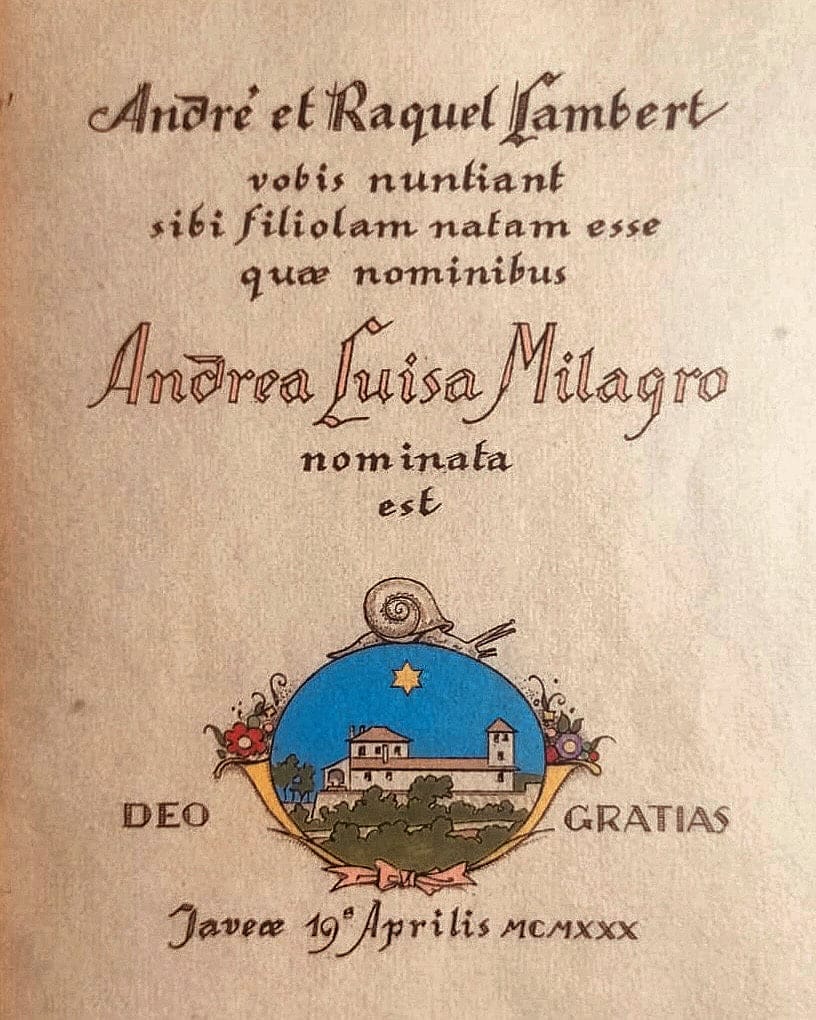 André et Raquel Lambert
vobis nuntiant
sibi filiolam natam esse
quæ nominibus
Andrea Luisa Milagro
nominata
est
DEO GRATIAS
Javeæ 19ª Aprilis MCMXXX